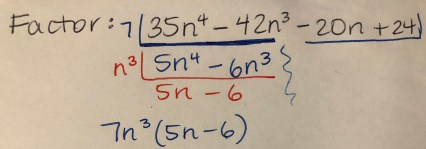 Factor: 7 35n⁴ - 42n³ - 20n + 24
n³ 5n⁴ - 6n³
5n - 6
7n³(5n-6)